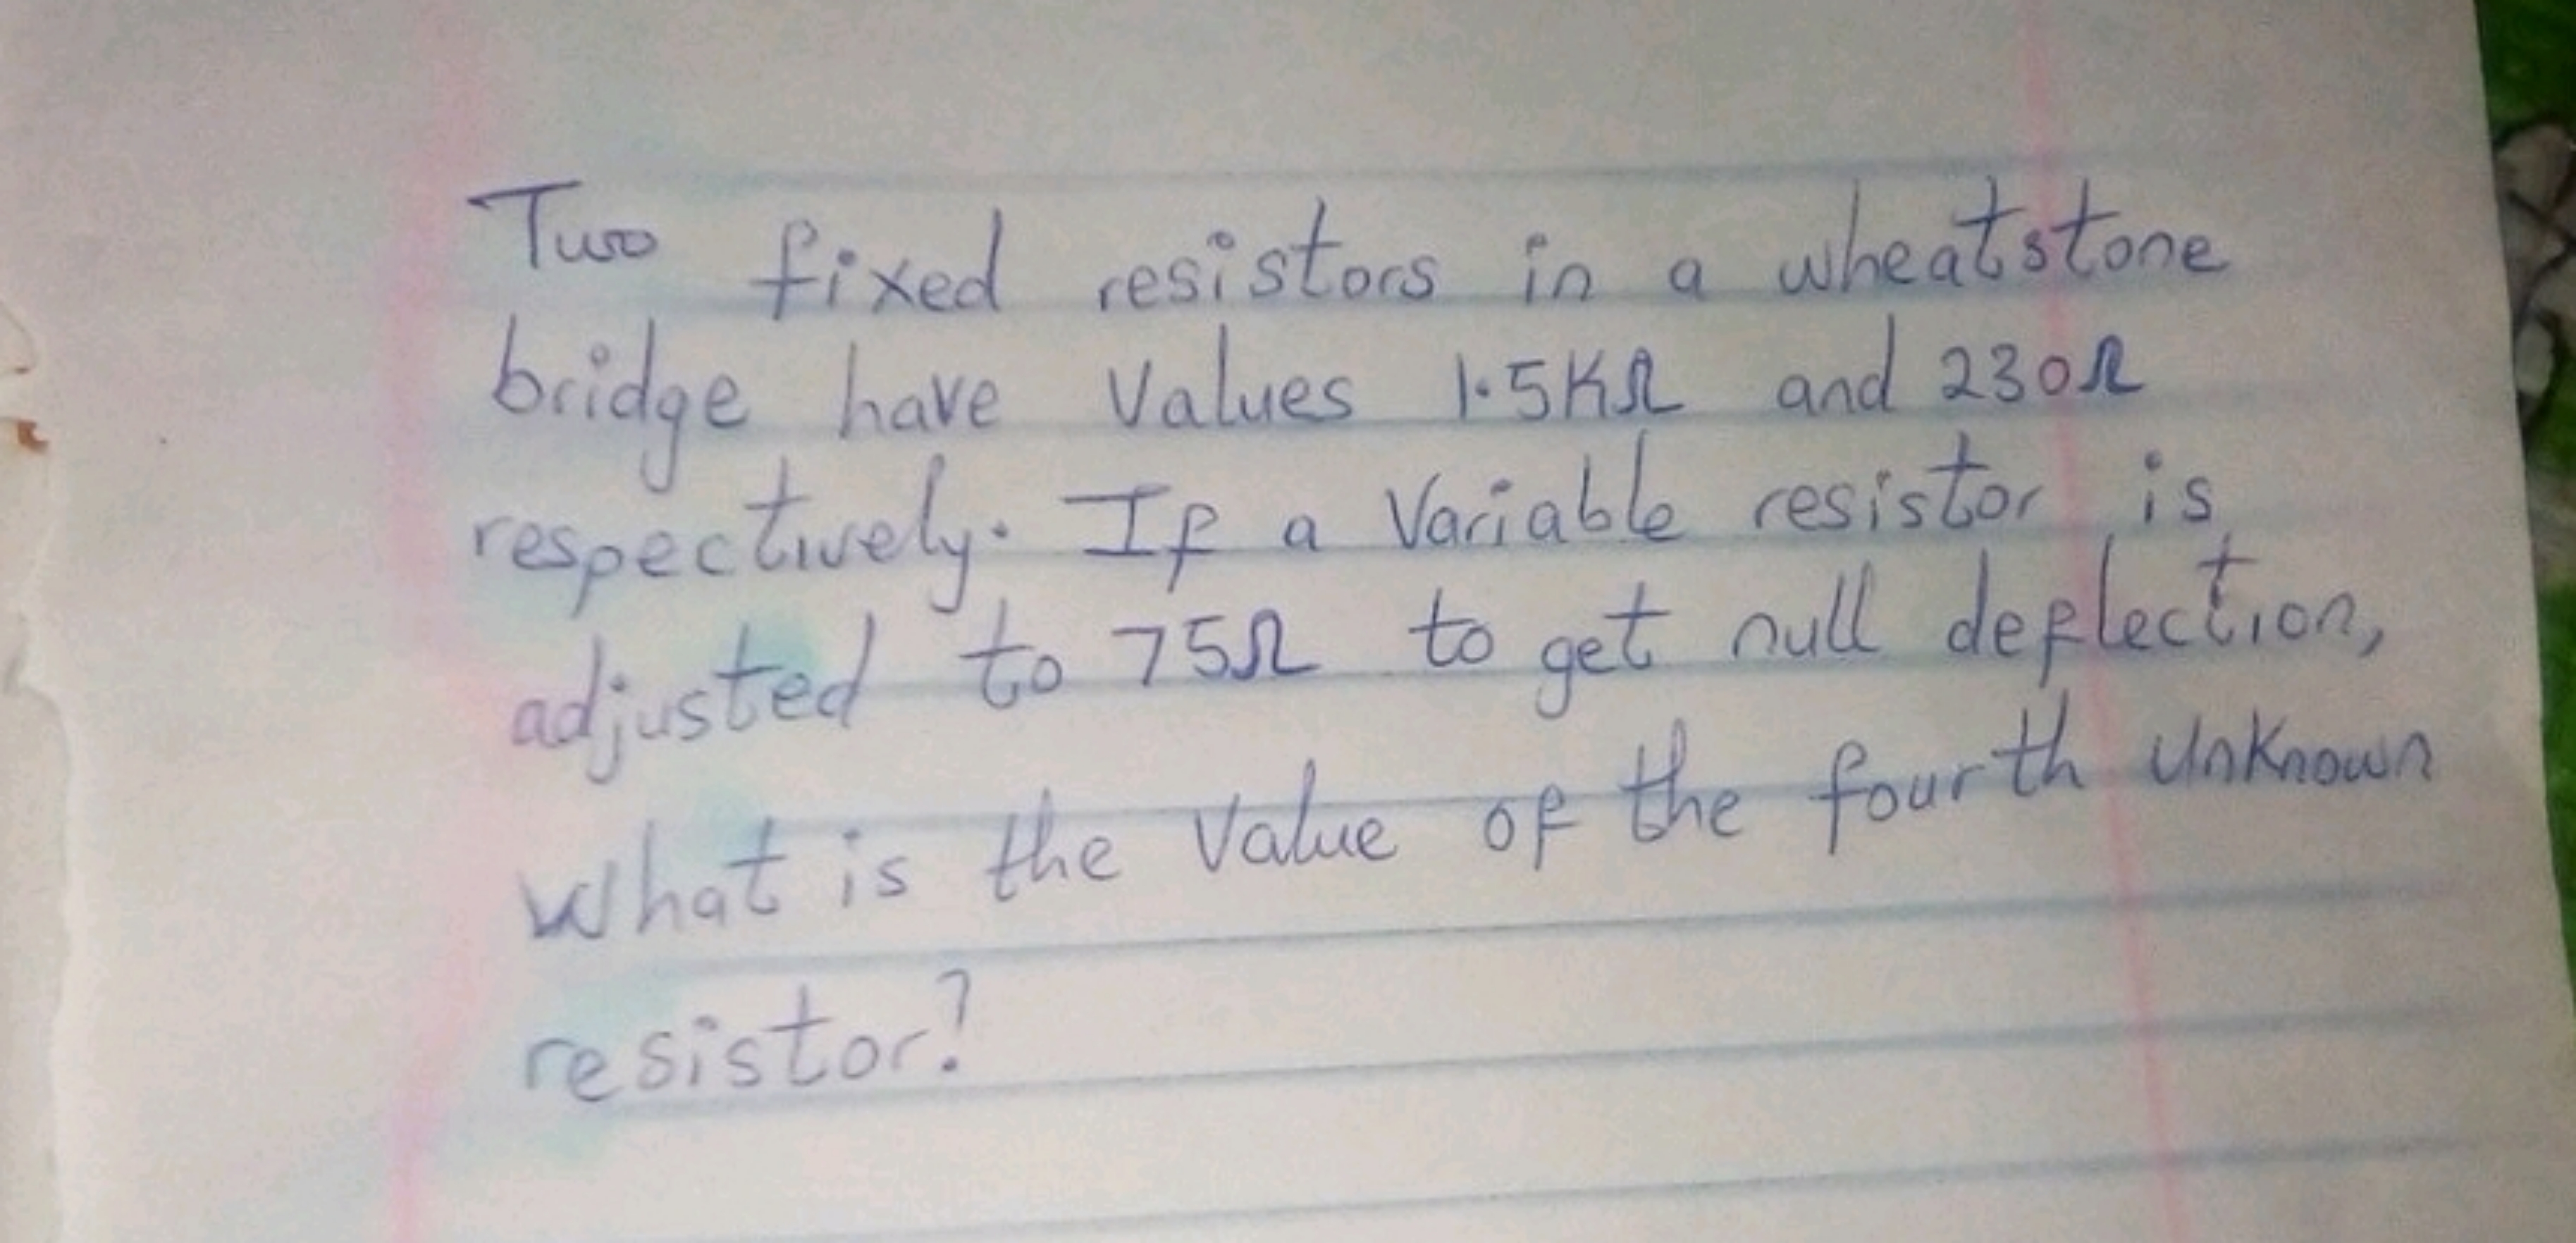 Two fixed resistors in a wheatstone
bridge have Values 1.5KΩ and 230Ω
respectively. If a Variable resistor is
adjusted to 75Ω to get null deflection,
What is the Value of the fourth Unknown
resistor?